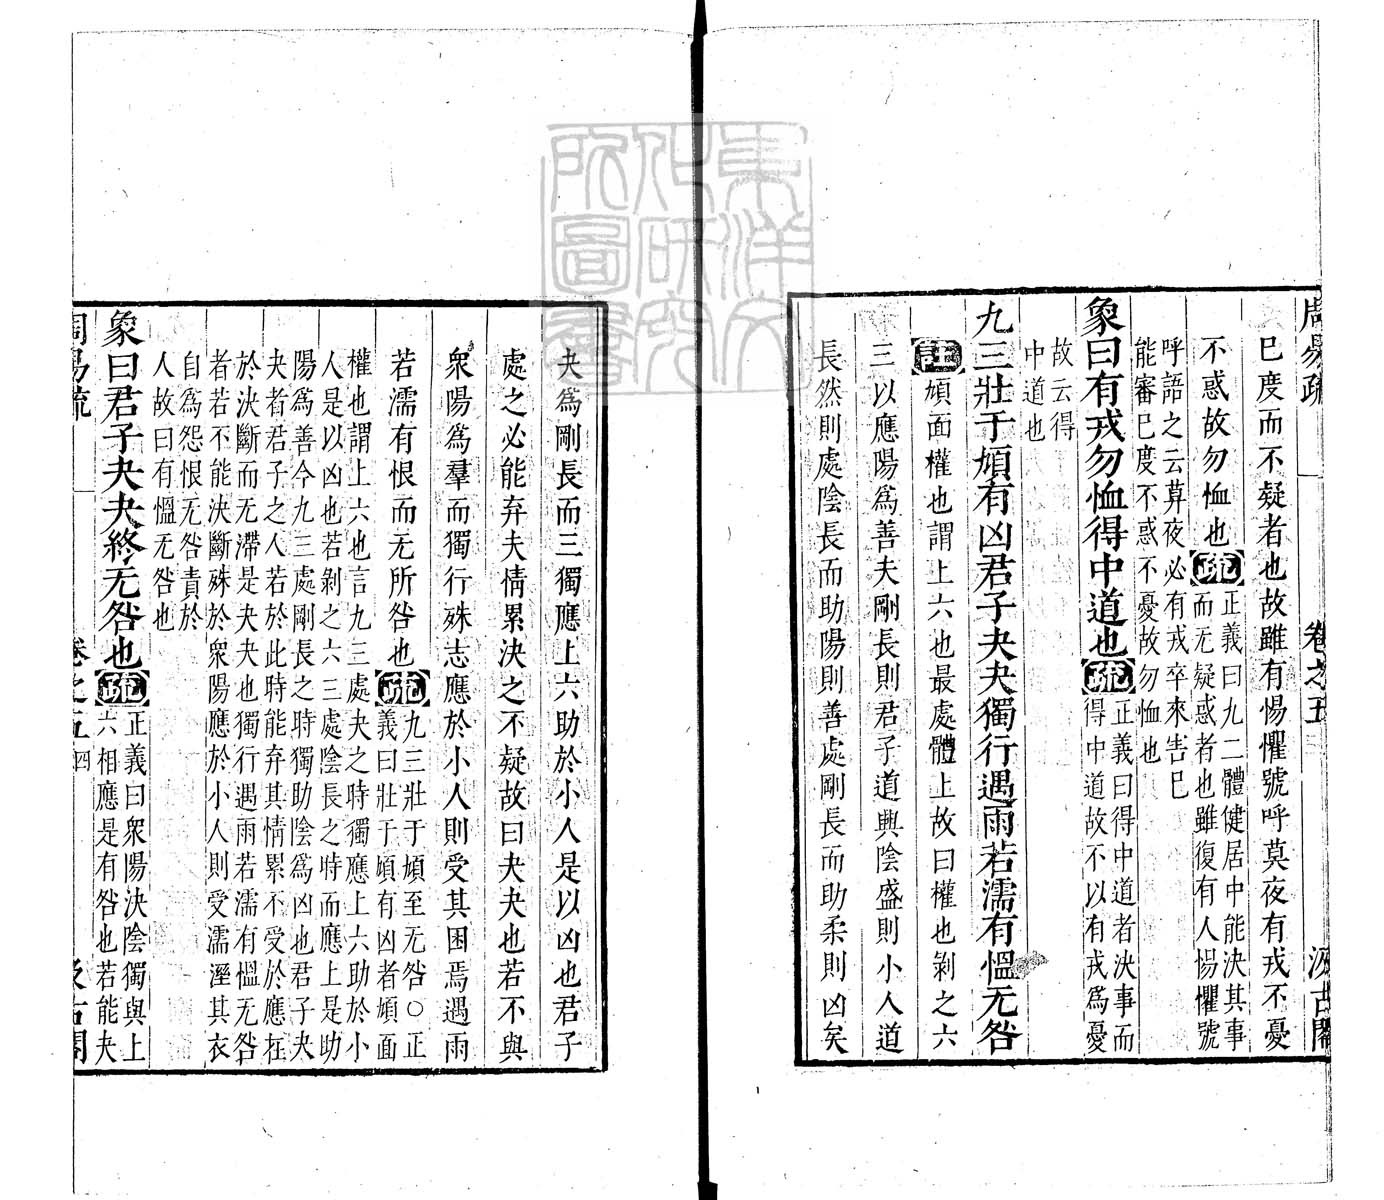 周易疏 卷之五 三 汲古閣
已度而不疑者也故雖有惕懼號呼莫夜有戎不憂
不惑故勿恤也疏
正義曰九二體健居中能決其事
而无疑惑者也雖復有人惕懼號
呼語之云莫夜必有戎卒來害已
能審已度不惑不憂故勿恤也
象曰有戎勿恤得中道也疏
正義曰得中道者決事而
得中道故不以有戎爲憂
故云得
中道也
九三壯于頄有凶君子夬夬獨行遇雨若濡有慍无咎
註頄面權也謂上六也最處體上故曰權也剝之六
三以應陽爲善夫剛長則君子道興陰盛則小人道
長然則處陰長而助陽則善處剛長而助柔則凶矣
夬爲剛長而三獨應上六助於小人是以凶也君子
處之必能弃夫情累決之不疑故曰夬夬也若不與
衆陽爲羣而獨行殊志應於小人則受其困焉遇雨
若濡有恨而无所咎也疏
九三壯于頄至无咎○正
義曰壯于頄有凶者頄面
權也謂上六也言九三處夬之時獨應上六助於小
人是以凶也若剝之六三處陰長之時而應上是助
陽爲善今九三處剛長之時獨助陰爲凶也君子夬
夬者君子之人若於此時能弃其情累不受於應在
於決斷而无滯是夬夬也獨行遇雨若濡有慍无咎
者若不能決斷殊於衆陽應於小人則受濡溼其衣
自爲怨恨无咎責於
人故曰有慍无咎也
象曰君子夬夬終无咎也疏
正義曰衆陽決陰獨與上
六相應是有咎也若能夬
周易疏 卷之五 四 汲古閣
東洋文化研究所圖書